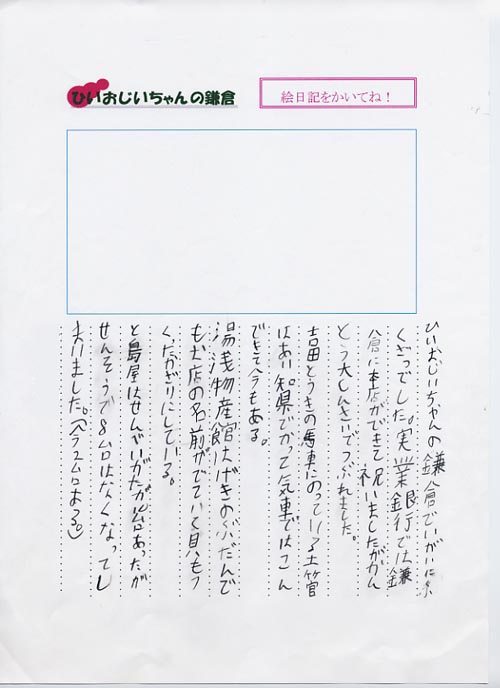 ひいおじいちゃんの鎌倉
絵日記をかいてね！
ひいおじいちゃんの鎌倉でいがいに糸
くぎつでした。実業銀行では鎌
倉に本店ができて祝いましたがかん
とう大しんさいでつぶれました。
吉田とうきの馬車にのっている土管
はあい知県でかって気車ではこん
できて今もある。
湯浅物産館はげきのぶだんで
もお店の名前がでていて貝もつ
くったかざりにしている。
と島屋はせんでいがたが台あったが
せんそうで8台はなくなってし
まいました。